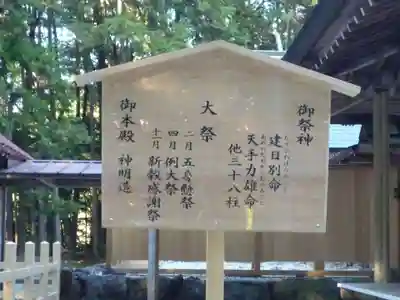 御祭神
建日別命
天手力雄命
他三十八柱
大祭
二月 五音懸祭
四月 例大祭
十一月 新穀感謝祭
御本殿 神明造